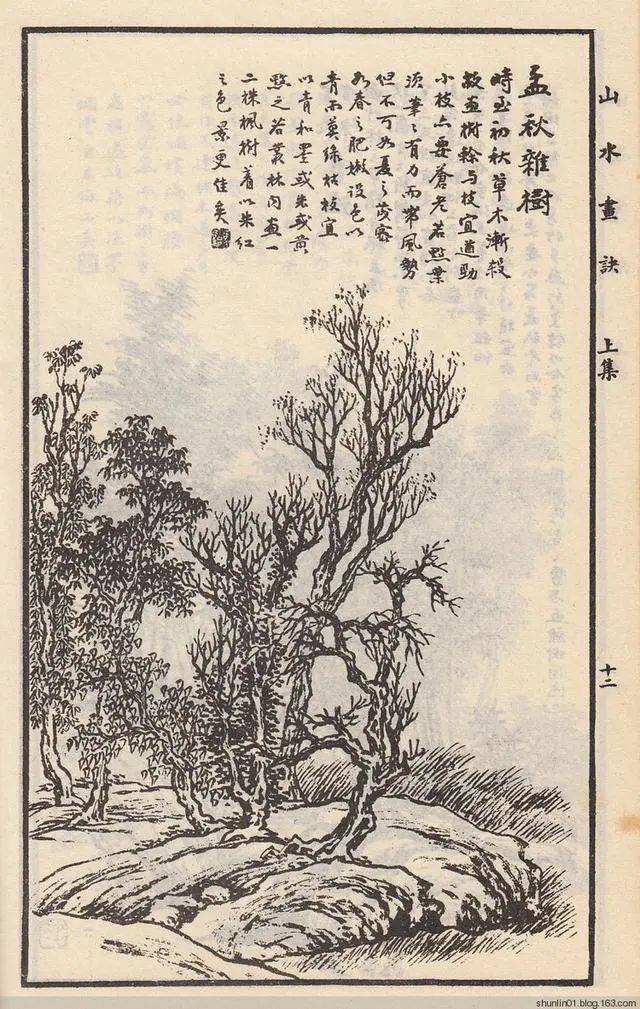 山水畫訣 上集
十二
孟秋雜樹
時至初秋草木漸殺
故畫樹榦与枝宜遒勁
小枝亦要蒼老若點葉
須筆々有力而帶風勢
但不可如夏之茂密
如春之肥嫩設色以
青而莫綠枯枝宜
以青和墨或朱或黃
點之若叢林內畫一
二株楓樹着以朱紅
之色景更佳矣
shunlin01.blog.163.com